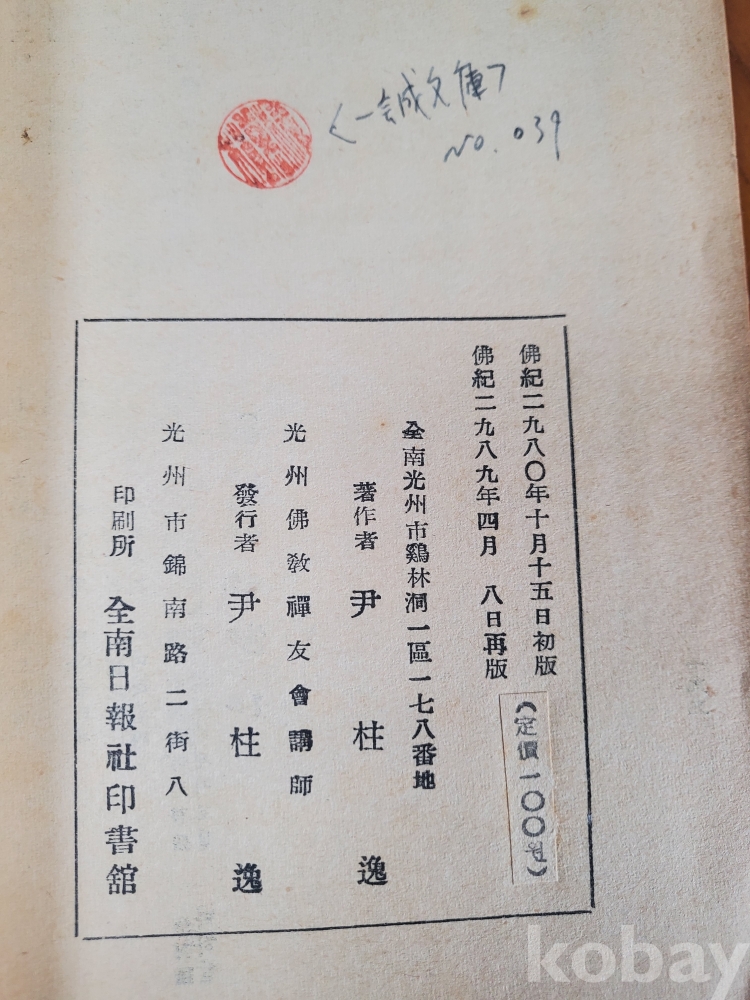 <一誠文庫>
No. 039
佛紀二九八〇年十月十五日初版
佛紀二九八九年四月 八日再版
(定價一〇〇원)
全南光州市鷄林洞一區一七八番地
著作者 尹柱逸
光州佛敎禪友會講師
發行者 尹柱逸
光州市錦南路二街八
印刷所 全南日報社印書舘
kobay